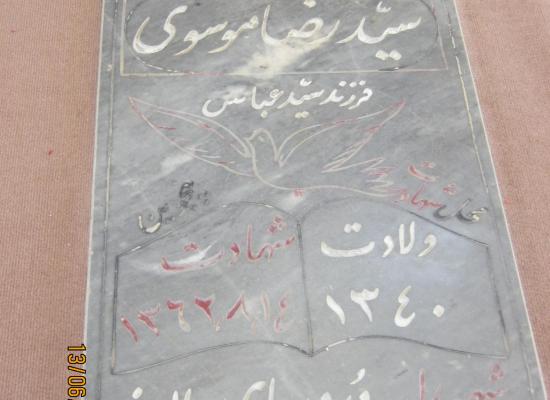 سیّد رضا موسوی
فرزند سیّد عباس
محل شهادت
ولادت شهادت
۱۳۴۰ ۱۳۶۶/۸/۱۴
13/06